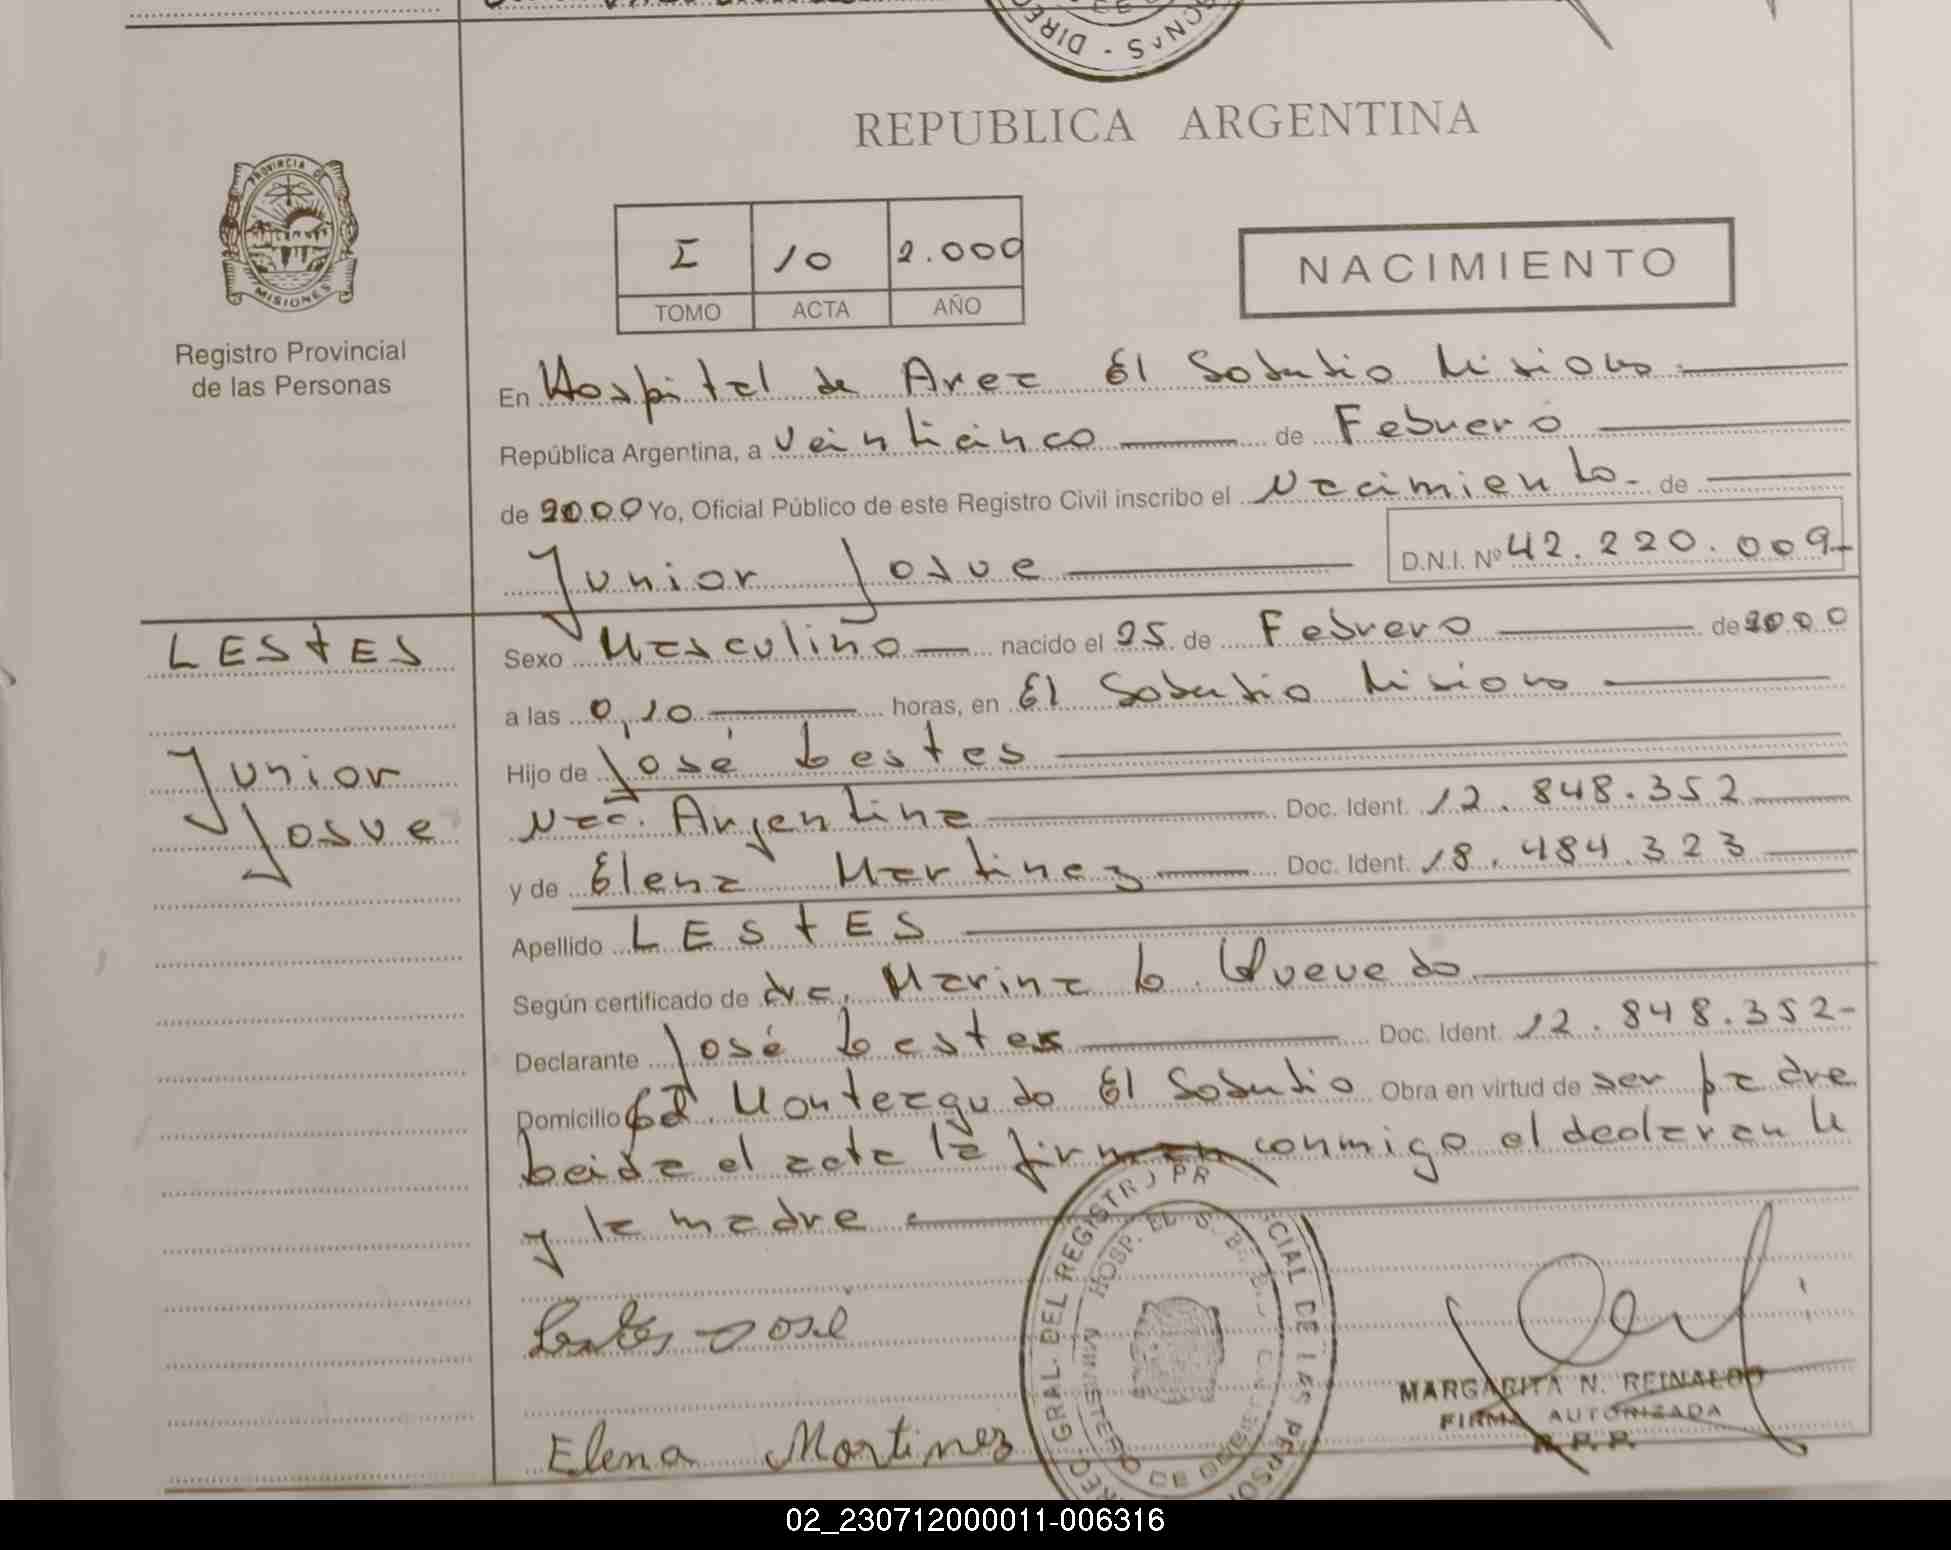 REPUBLICA ARGENTINA
PROVINCIA DE
MISIONES
Registro Provincial
de las Personas
I 10 2.000
TOMO ACTA AÑO
NACIMIENTO
En Hospital de Area El Soberbio Misiones
República Argentina, a veinticinco de Febrero
de 2000 Yo, Oficial Público de este Registro Civil inscribo el Nacimiento de
Junior Josue D.N.I. Nº 42.220.009
LESTES
Junior
Josue
Sexo Masculino nacido el 25 de Febrero de 2000
a las 0,10 horas, en El Soberbio Misiones
Hijo de José Lestes
Nac. Argentina Doc. Ident. 12.848.352
y de Elena Martinez Doc. Ident. 18.484.323
Apellido LESTES
Según certificado de dra. Marina L. Quevedo
Declarante José Lestes Doc. Ident. 12.848.352
Domicilio Monteagudo El Soberbio Obra en virtud de ser padre
Leida el acta la firman conmigo el declarante
y la madre
Lestes José
Elena Martinez
GRAL. DEL REGISTRO
HOSP. EL
MARGARITA N. REINALDO
FIRMA AUTORIZADA
R.P.P.
02_230712000011-006316